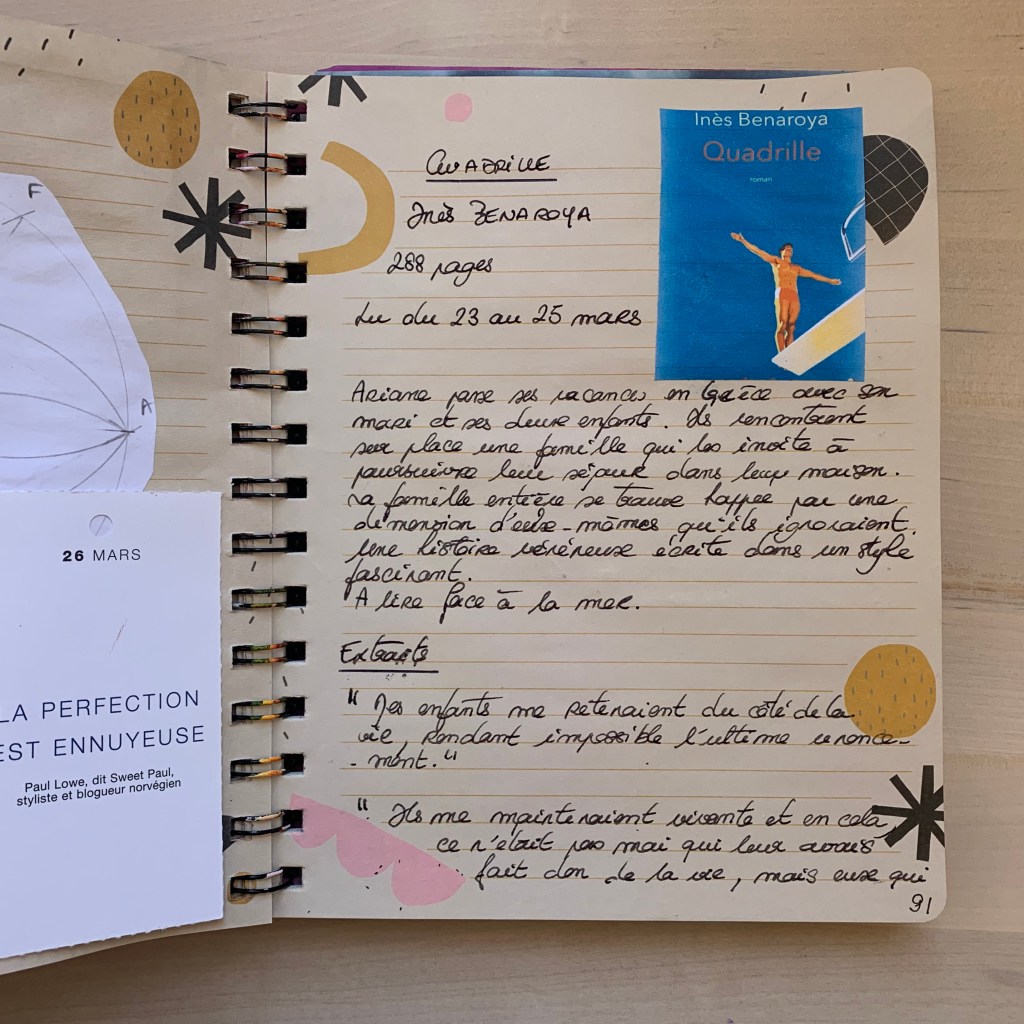 F
A
26 MARS
LA PERFECTION
EST ENNUYEUSE
Paul Lowe, dit Sweet Paul,
styliste et blogueur norvégien
Inès Benaroya
Quadrille
roman
QUADRILLE
Inès BENAROYA
288 pages
Lu du 23 au 25 mars
Ariane passe ses vacances en Grèce avec son
mari et ses deux enfants. Ils rencontrent
sur place une famille qui les invite à
poursuivre leur séjour dans leur maison.
La famille entière se trouve happée par une
dimension d'eux-mêmes qu'ils ignoraient.
Une histoire vénéneuse écrite dans un style
fascinant.
A lire face à la mer.
Extraits
" Mes enfants me retenaient du côté de la
vie, rendant impossible l'ultime renonce-
-ment."
" Ils me maintenaient vivante et en cela,
ce n'était pas moi qui leur avais
fait don de la vie, mais eux qui
91